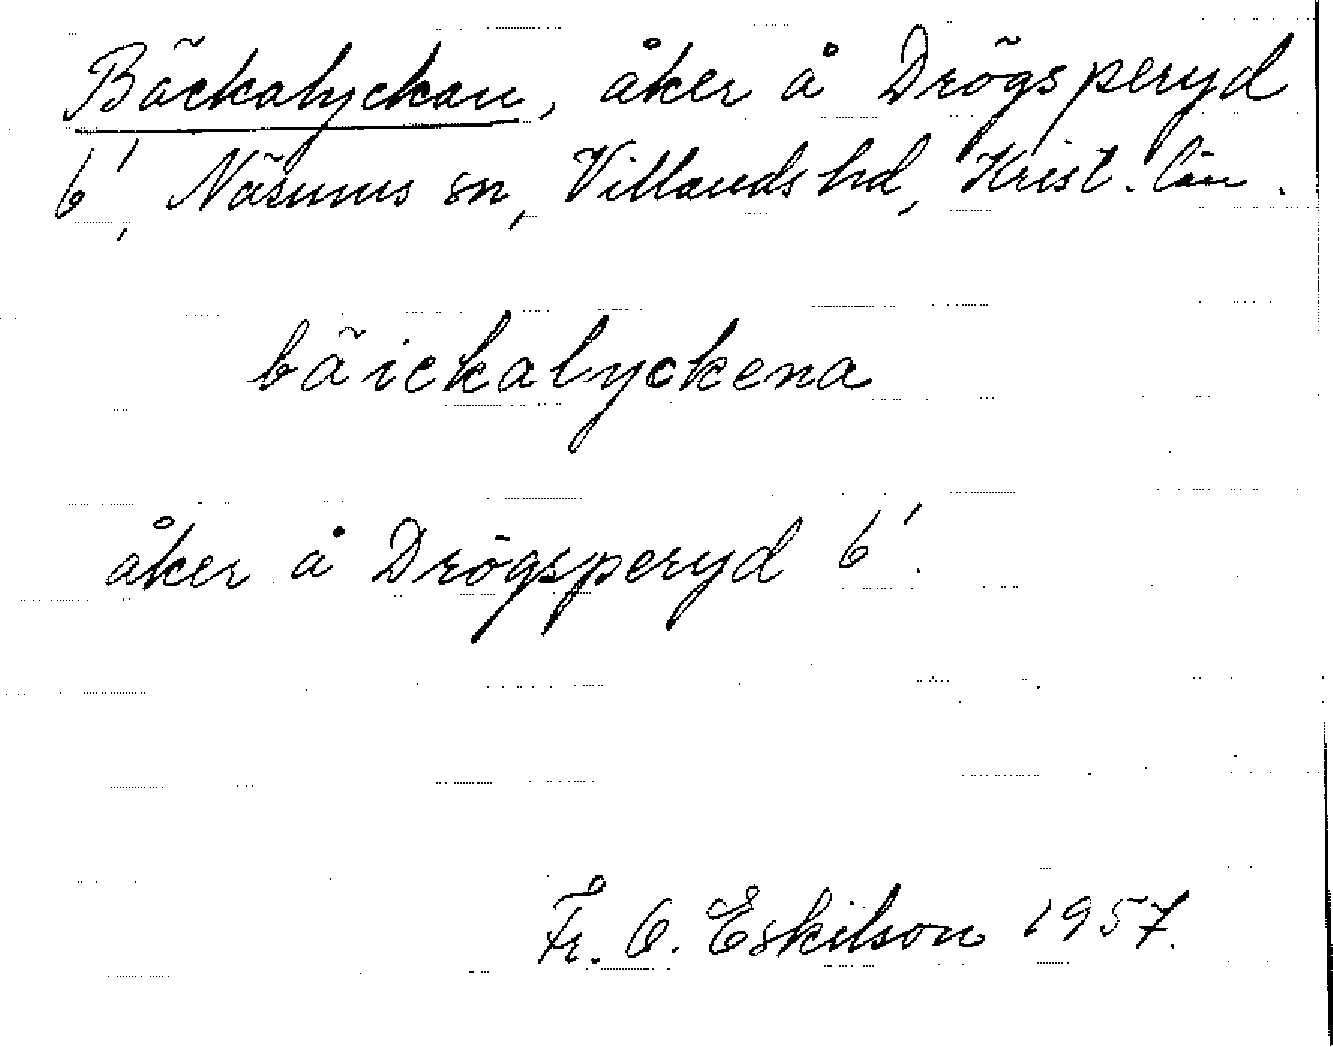 Bäckalyckan, åker å Drögsperyd
6¹, Näsums sn, Villands hd, Krist. län.
bäickalyckena
åker å Drögsperyd 6¹.
Fr. O. Eskilson 1957.